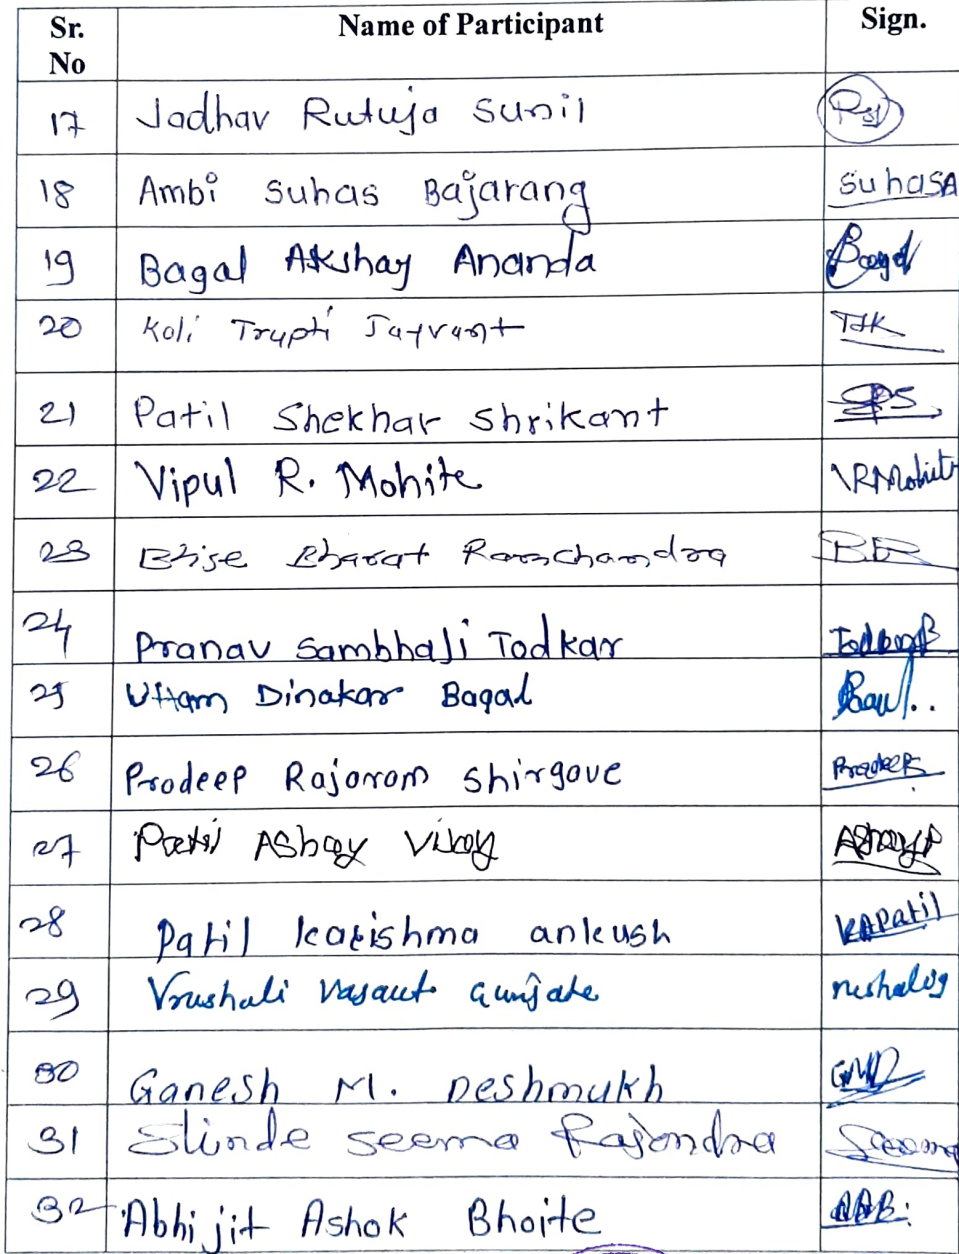 Sr. No Name of Participant Sign.
17 Jadhav Rutuja Sunil
18 Ambi Suhas Bajarang SuhasA
19 Bagal Akshay Ananda Bagal
20 Koli Trupti Jayvant TJK
21 Patil Shekhar Shrikant SPS
22 Vipul R. Mohite VRMohite
23 Bhise Bharat Ramchandra BBR
24 Pranav Sambhaji Todkar
25 Uttam Dinakar Bagal
26 Pradeep Rajaram Shirgave Pradeep
27 Patil Abhay Vijay AbhayP
28 Patil Karishma ankush KAPatil
29 Vrushali Vasant Gunjate
30 Ganesh M. Deshmukh GMD
31 Shinde Seema Rajendra Seema
32 Abhijit Ashok Bhoite AAB.